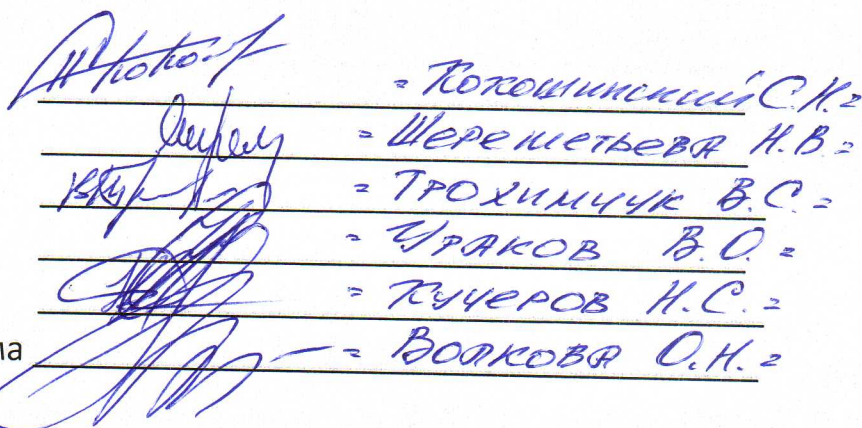 = Кокошинский С.К. =
= Шереметьева Н.В. =
= Трохимчук В.С. =
= Ураков В.О. =
= Кучеров Н.С. =
ла = Волкова О.Н. =